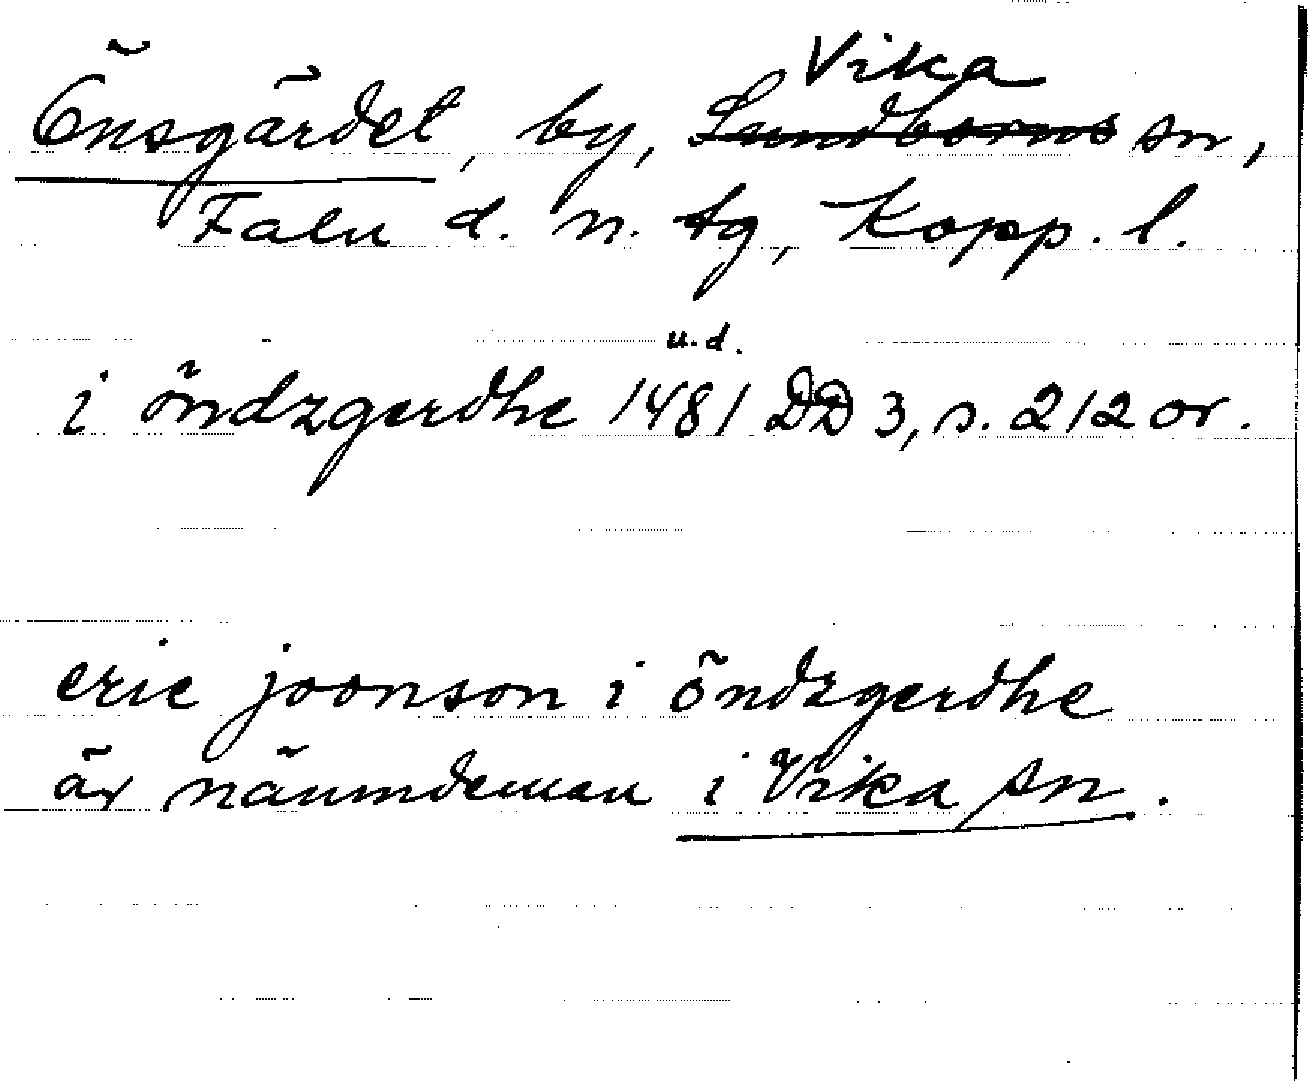 Vika
Önsgärdet, by, Sundborns sn,
Falu d. n. tg, Kopp. l.
u.d.
i öndzgerdhe 1481 DD 3, s. 212 or.
eric joonson i öndzgerdhe
är nämndeman i Vika sn.